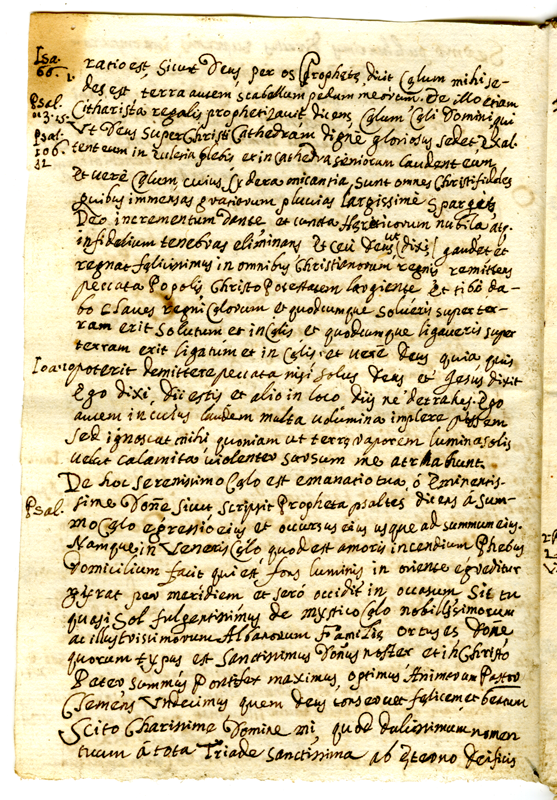 Isa.
66. 1.
ratio est, Sicut Deus per os Prophetę dixit Cęlum mihi se-
des est terra autem scabellum pedum meorum. De illo etiam
Psal.
113. 25.
Citharista regalis prophetizavit dicens Cęlum Cęli Domini qui
Psal.
106.
32
Ut Deus super Christi Cathedram dignè gloriosus sedet Exal-
tent eum in Ecclesia plebis et in Cathedra seniorum laudent eum
Et verè Cęlum, cuius sydera micantia, sunt omnes Christi fideles
quibus immensas gratiarum pluvias largissimè spargit,
Deo incrementum dante et cuncta Hęreticorum nubila, atq
infidelium tenebras eliminans Et ceu Deus (dixi) gaudet et
regnat fęlicissimus in omnibus Christianorum regnis remittens
peccata Populis Christo Potestatem largiente Et tibi da-
bo Claves regni Cęlorum et quodcumque solveris super ter-
ram erit solutum et in Cęlis et quodcumque ligaveris super
terram erit ligatum et in Cęlis: et verè Deus quia quis
Ioan. 10
poterit demittere peccata nisi solus Deus et Jesus dixit
Ego dixi, dii estis et alio in loco diis ne detrahes. Ego
autem in cuius laudem multa volumina implere possem
sed ignoscat mihi quoniam ut terrę vaporem lumina solis
velut calamita violenter sursum me atrahunt.
De hoc serenissimo Cęlo est emanatio tua, ò Eminentis-
Psal.
sime Domne sicut scripsit Propheta psaltes dicens à Sum-
mo Cęlo egressio eius et occursus eius usque ad summum eius.
Namque in Veneris Cęlo quod est amoris incendium Phebus
Domicilium facit qui est fons luminis in oriente egreditur
gyrat per meridiem et serò occidit in occasum Sic tu
quasi Sol fulgentissimus de mystico Cęlo nobilissimorum
ac illustrissimorum Albanorum Familię ortus es Domne
quorum typus est Sanctissimus Domnus noster et in Christo
Pater summus Pontifex maximus, optimus Animarum Pastor
Clemens Undecimus quem Deus conservet fęlicem et beatum
Scito Charissime Domine mi, quod dulcissimum nomen
tuum à tota Triade Sanctissima ab Ęterno deificis